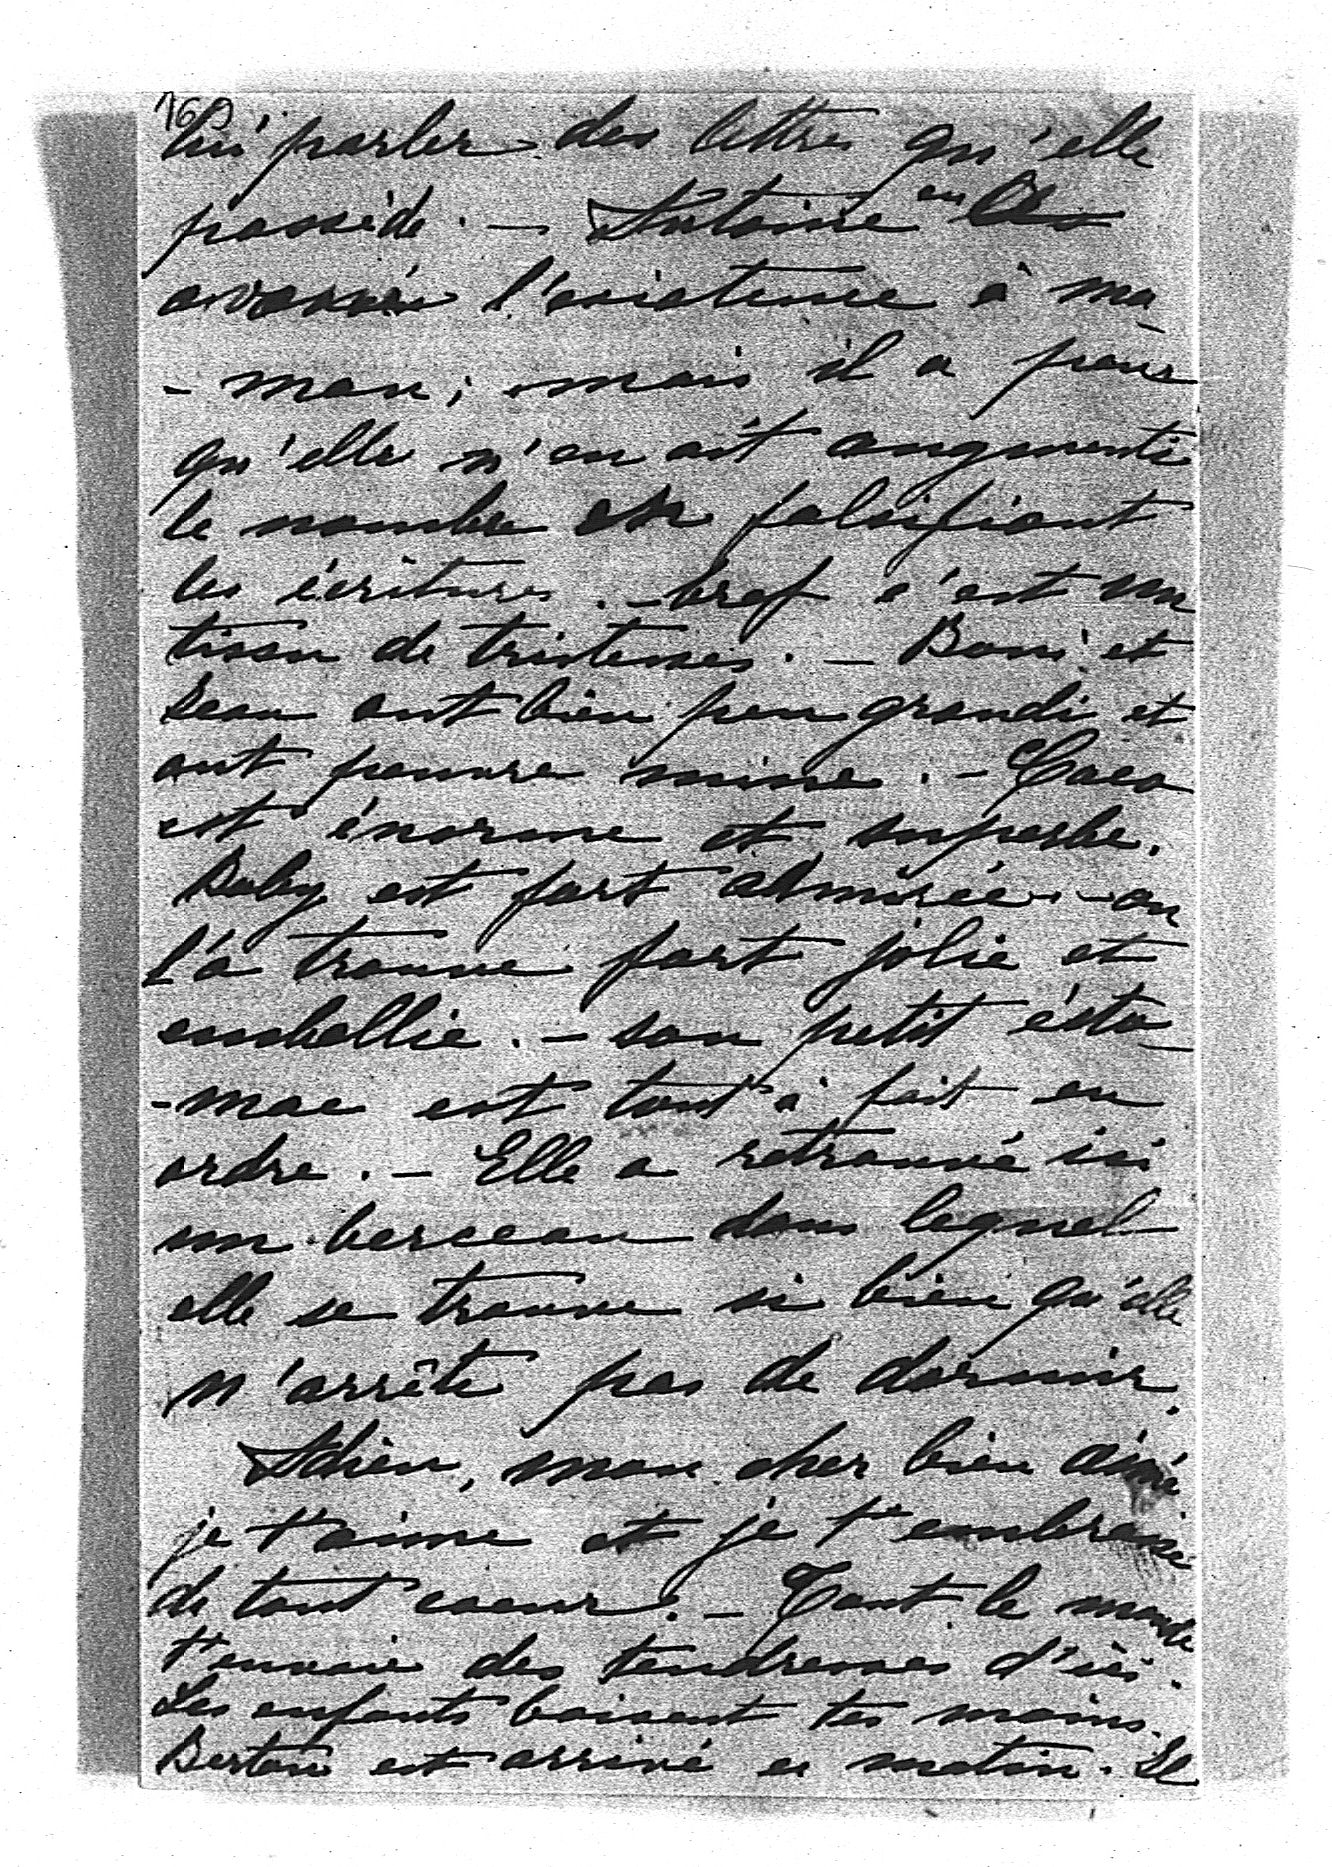 169
lui parler des lettres qu'elle
possède. — Antoine en
avouée l'existence à ma-
- man; mais il a peur
qu'elle n'en ait augmenté
le nombre en falsifiant
les écritures. — bref c'est un
tissu de tristesses. — Boni et
Jean ont bien peu grandi et
ont pauvre mine. — Coco
est énorme et superbe.
Baby est fort admirée — on
l'a trouve fort jolie et
embellie. — son petit ésto-
- mac est tout à fait en
ordre. — Elle a retrouvé ici
un berceau dans lequel
elle se trouve si bien qu'elle
n'arrête pas de dormir.
Adieu, mon cher bien aimé
je t'aime et je t'embrasse
de tout coeur. — Tout le monde
t'envoie des tendresses d'ici.
Les enfants baisent tes mains.
est arrivé ce matin. Il